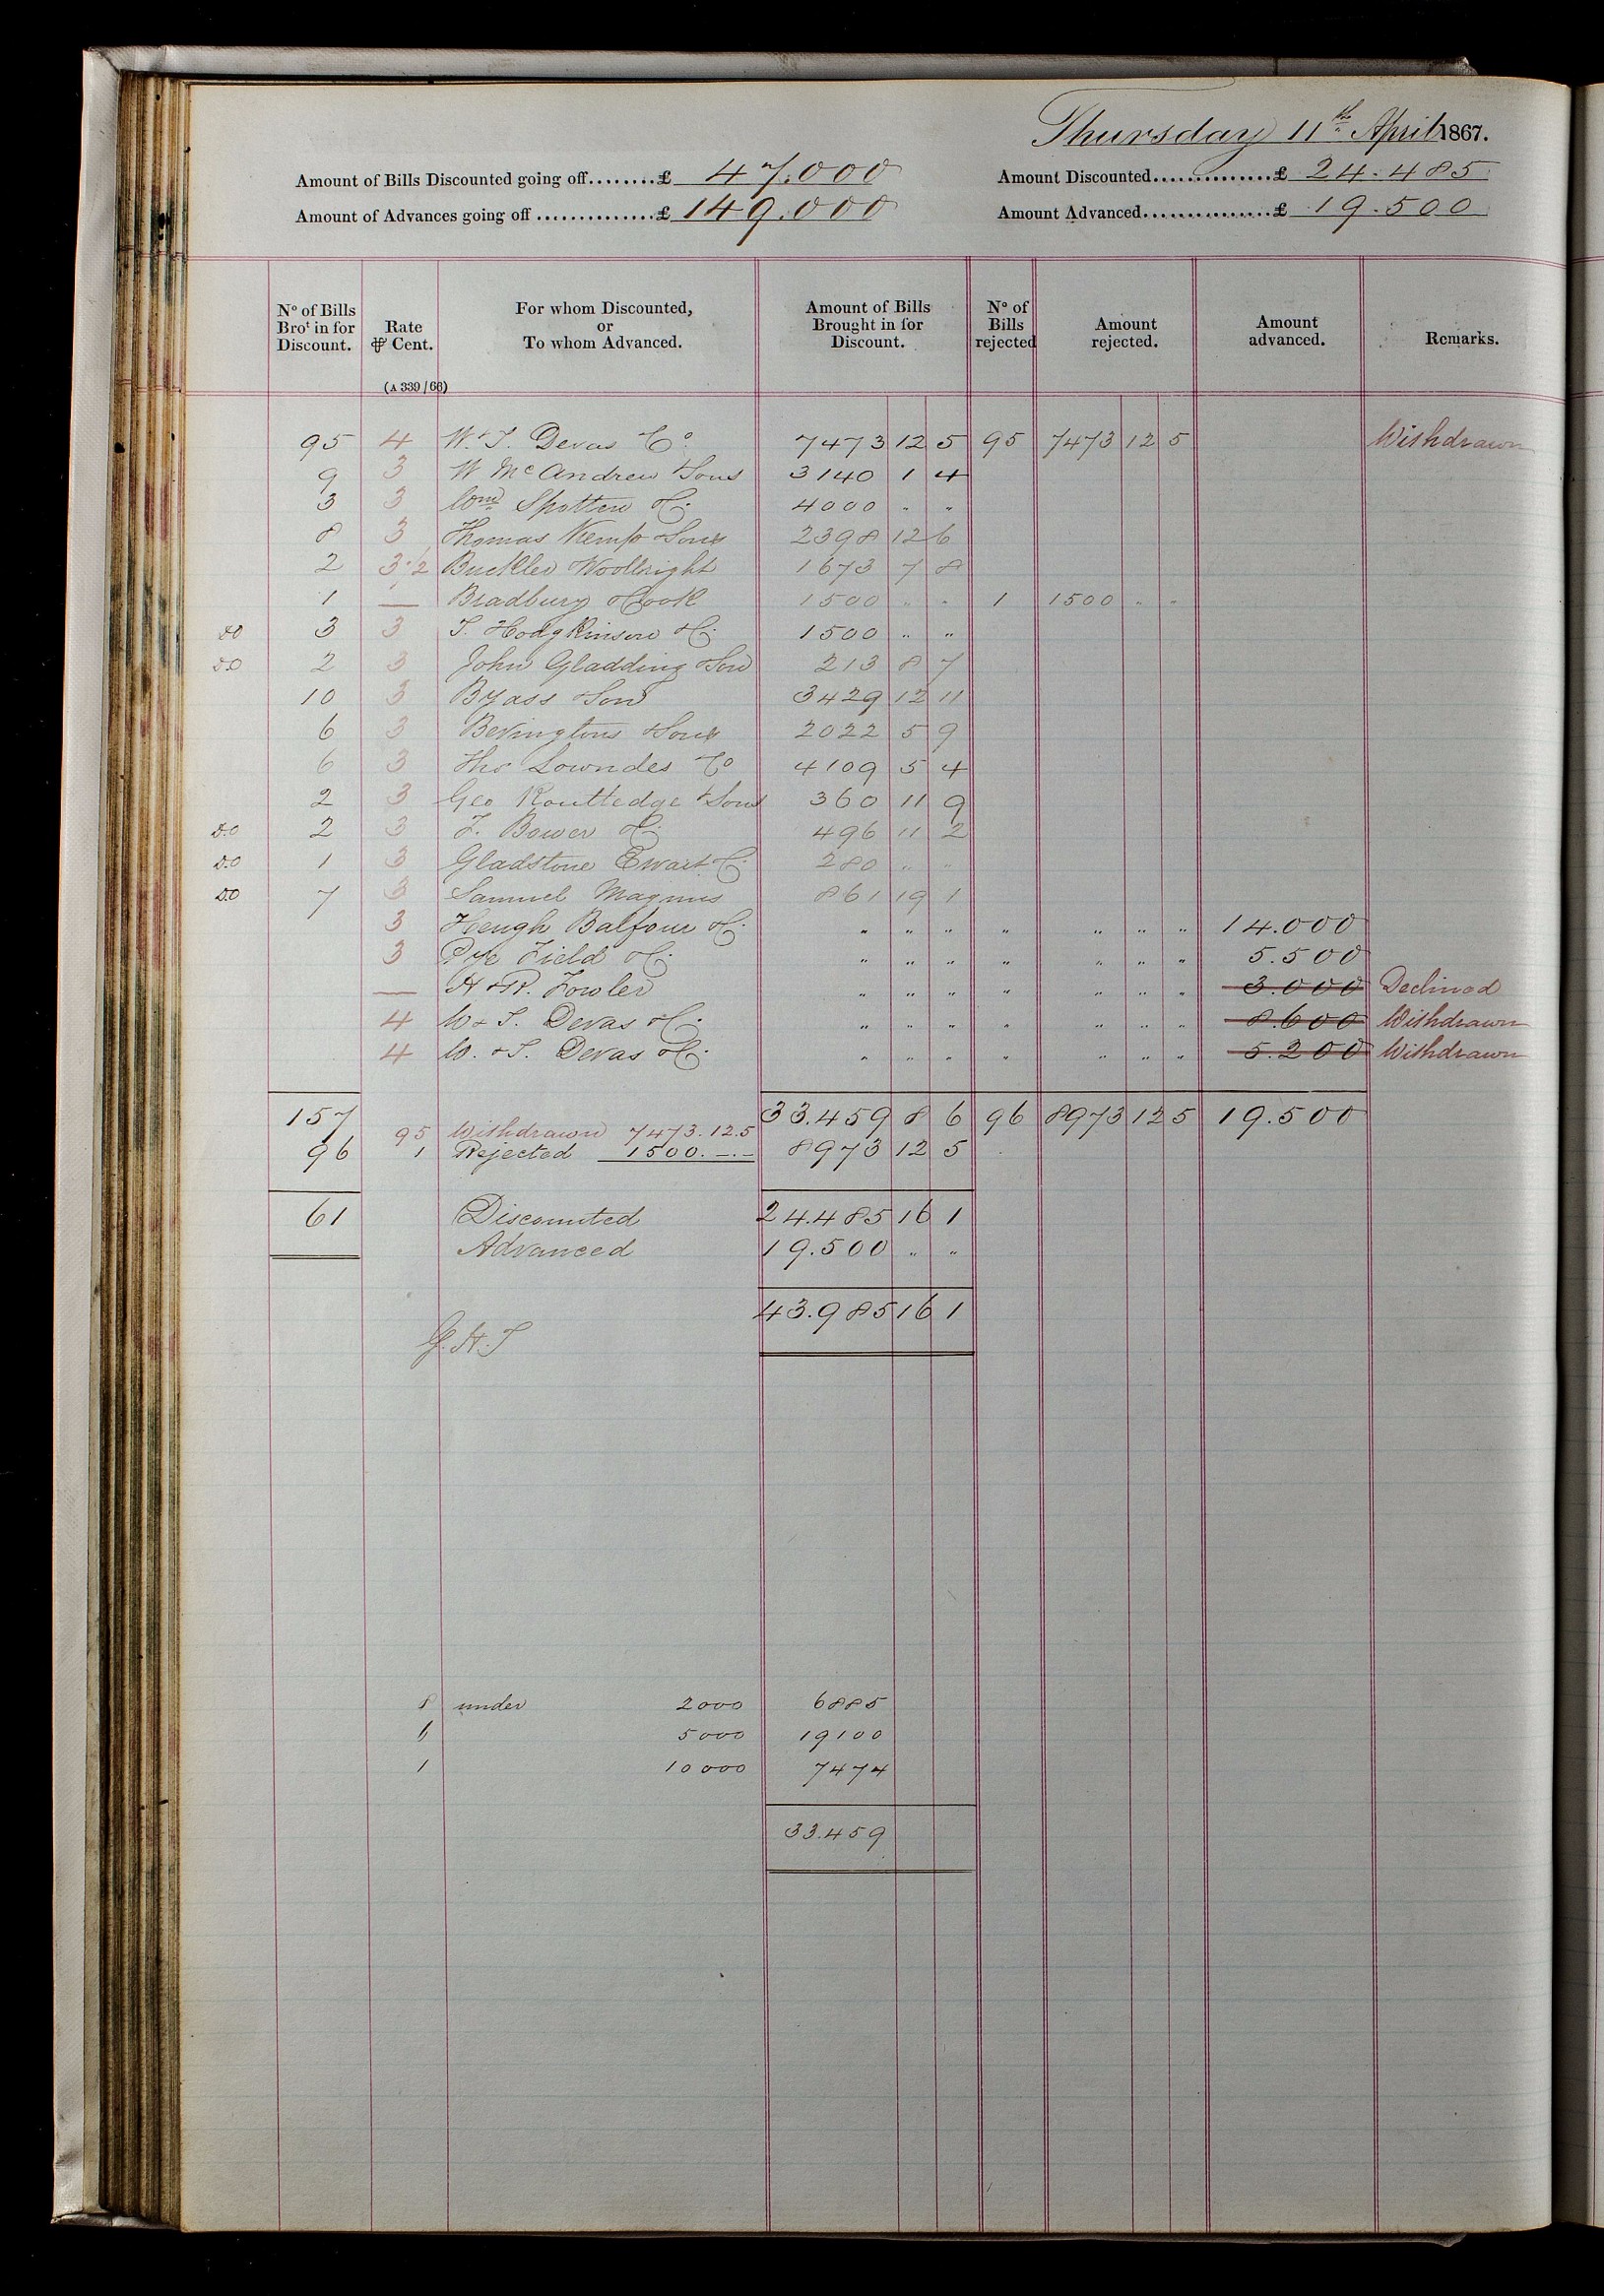 Thursday 11th April 1867.
Amount of Bills Discounted going off........£ 47.000 Amount Discounted...............£ 24.485
Amount of Advances going off ..............£ 149.000 Amount Advanced................£ 19.500
No of Bills Brot in for Discount. Rate ⅌ Cent. For whom Discounted, or To whom Advanced. Amount of Bills Brought in for Discount. No of Bills rejected Amount rejected. Amount advanced. Remarks.
(A 339/66)
95 4 W. & T. Devas & Co. 7473 12 5 95 7473 12 5 Withdrawn
9 3 W McAndrew & Sons 3140 1 4
3 3 Wm Spotten & Co. 4000 " "
8 3 Thomas Kemp & Sons 2398 12 6
2 3 1/2 Buckler Woollright 1673 7 8
1 — Bradbury & Cook 1500 " " 1 1500 " "
D.O 3 3 T. Hodgkinson & Co. 1500 " "
D.O 2 3 John Gladding & Son 213 8 7
10 3 Byass & Son 3429 12 11
6 3 Bevingtons & Sons 2022 5 9
6 3 Tho Lowndes & Co 4109 5 4
2 3 Geo Routledge & Sons 360 11 9
D.O 2 3 F. Bower & Co. 496 11 2
D.O 1 3 Gladstone Ewart & Co. 280 " "
D.O 7 3 Samuel Magnus 861 19 1
3 Heugh Balfour & Co. " " " " " " " 14.000
3 Pye Field & Co. " " " " " " " 5.500
— H & R. Fowler " " " " " " " 3.000 Declined
4 W & T. Devas & Co. " " " " " " " 8.600 Withdrawn
4 W. & T. Devas & Co. " " " " " " " 5.200 Withdrawn
157 33.459 8 6 96 8973 12 5 19.500
95 Withdrawn 7473.12.5
96 1 Rejected 1500.—.— 8973 12 5
61 Discounted 24.485 16 1
Advanced 19.500 " "
43.985 16 1
G.H.T
8 under 2000 6885
6 5000 19100
1 10000 7474
33.459